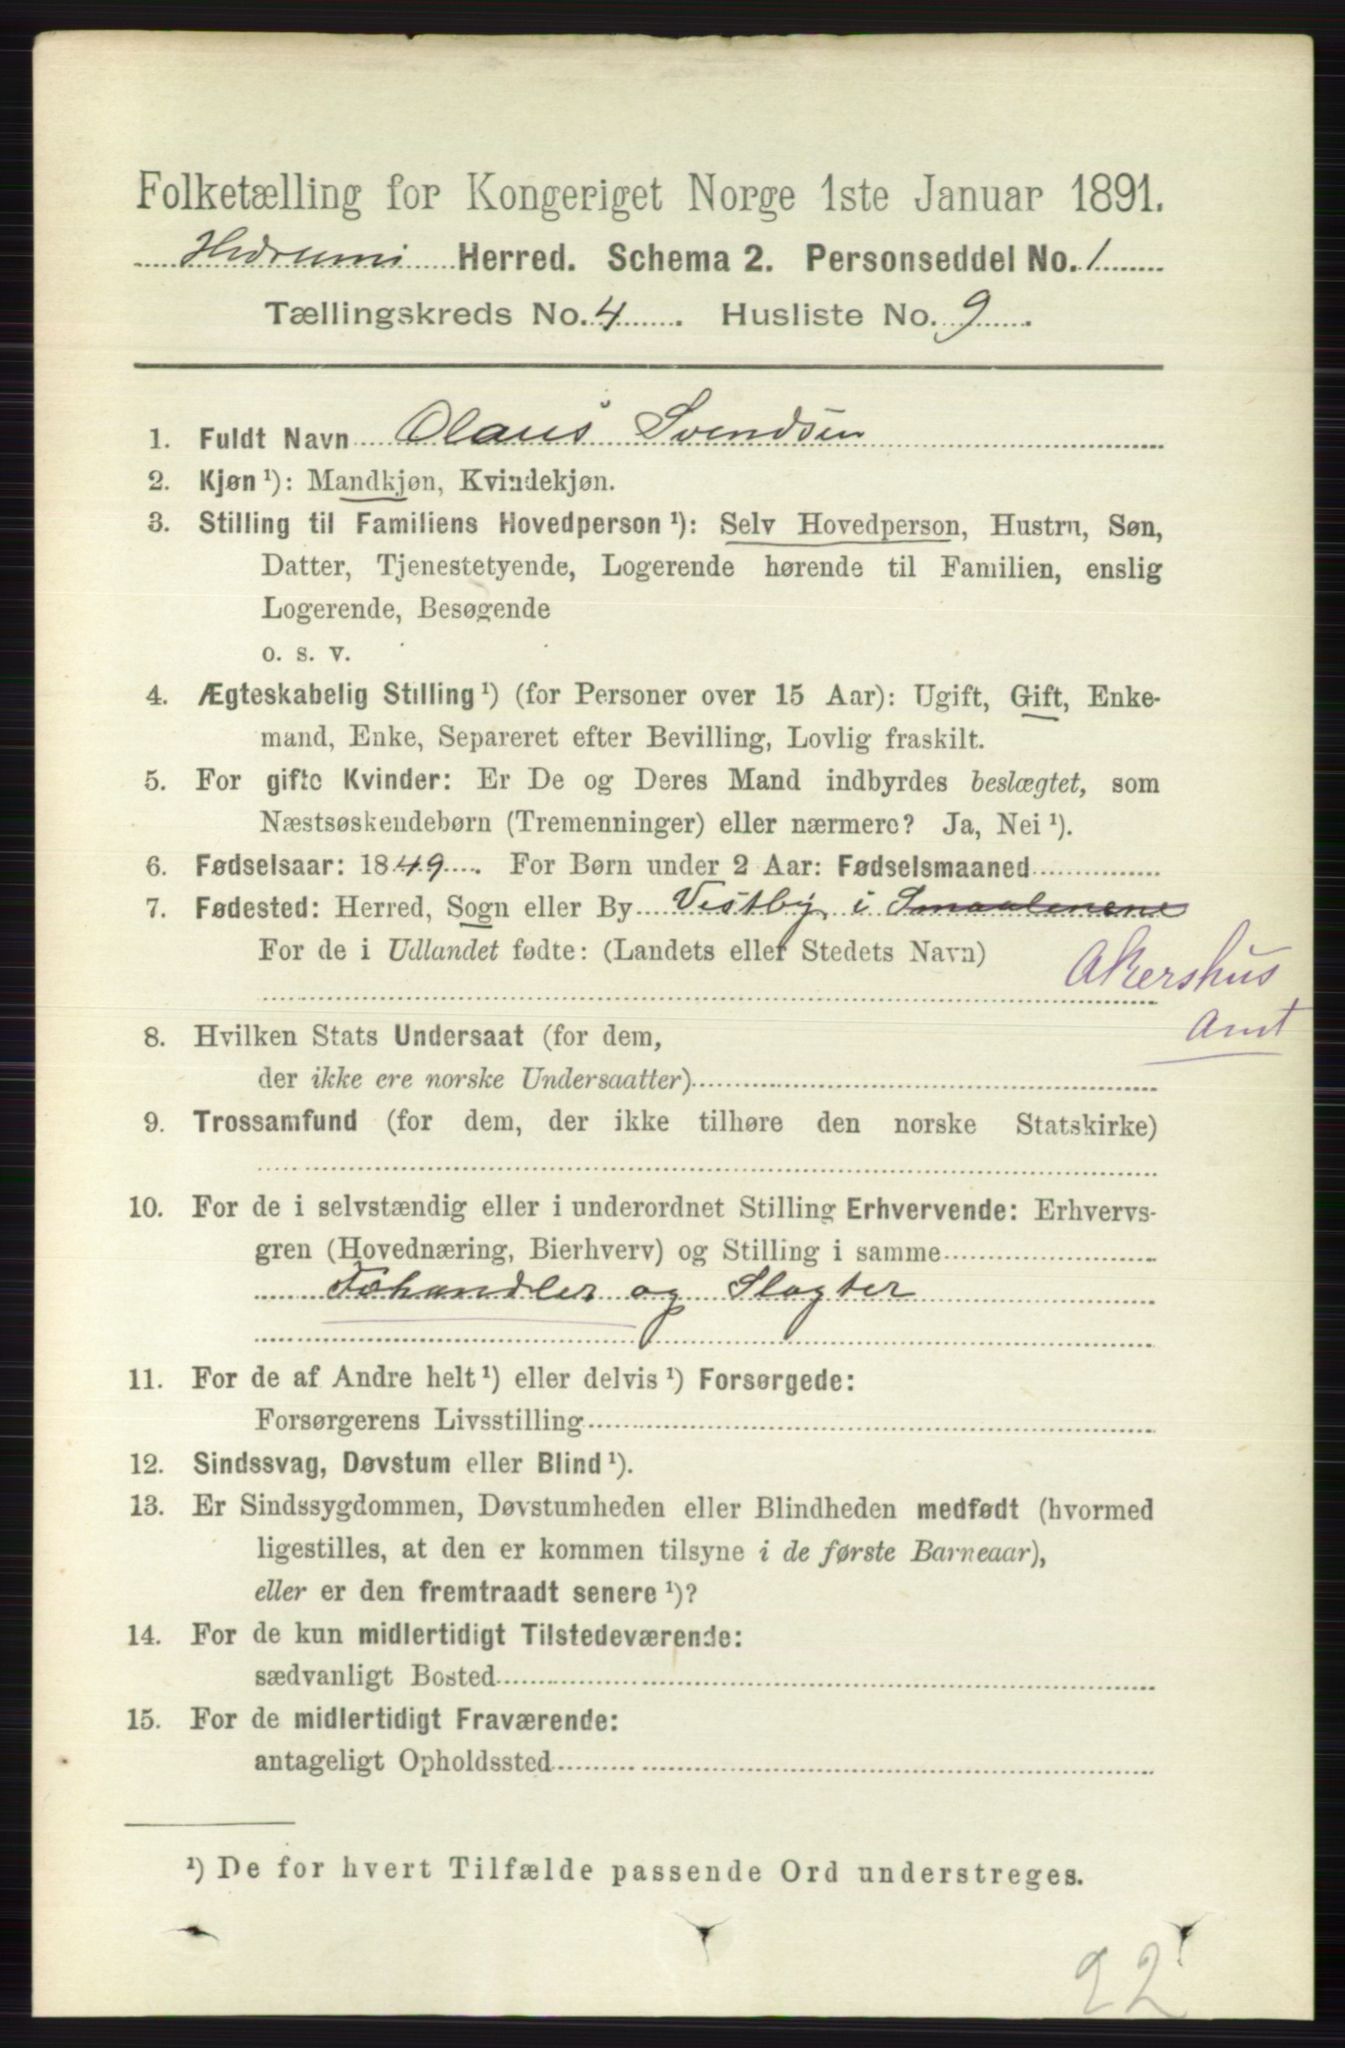 Folketælling for Kongeriget Norge 1ste Januar 1891.
Hedrum Herred. Schema 2. Personseddel No. 1
Tællingskreds No. 4. Husliste No. 9.
1. Fuldt Navn Olaus Svendsen
2. Kjøn ¹): Mandkjøn, Kvindekjøn.
3. Stilling til Familiens Hovedperson ¹): Selv Hovedperson, Hustru, Søn,
Datter, Tjenestetyende, Logerende hørende til Familien, enslig
Logerende, Besøgende
o. s. v.
4. Ægteskabelig Stilling ¹) (for Personer over 15 Aar): Ugift, Gift, Enke-
mand, Enke, Separeret efter Bevilling, Lovlig fraskilt.
5. For gifte Kvinder: Er De og Deres Mand indbyrdes beslægtet, som
Næstsøskendebørn (Tremenninger) eller nærmere? Ja, Nei ¹).
6. Fødselsaar: 1849. For Børn under 2 Aar: Fødselsmaaned
7. Fødested: Herred, Sogn eller By Vestby i Smaalenene
For de i Udlandet fødte: (Landets eller Stedets Navn)
Akershus
Amt
8. Hvilken Stats Undersaat (for dem,
der ikke ere norske Undersaatter)
9. Trossamfund (for dem, der ikke tilhøre den norske Statskirke)
10. For de i selvstændig eller i underordnet Stilling Erhvervende: Erhvervs-
gren (Hovednæring, Bierhverv) og Stilling i samme
Fæhandler og Slagter
11. For de af Andre helt ¹) eller delvis ¹) Forsørgede:
Forsørgerens Livsstilling
12. Sindssvag, Døvstum eller Blind ¹).
13. Er Sindssygdommen, Døvstumheden eller Blindheden medfødt (hvormed
ligestilles, at den er kommen tilsyne i de første Barneaar),
eller er den fremtraadt senere ¹)?
14. For de kun midlertidigt Tilstedeværende:
sædvanligt Bosted
15. For de midlertidigt Fraværende:
antageligt Opholdssted
¹) De for hvert Tilfælde passende Ord understreges.
22